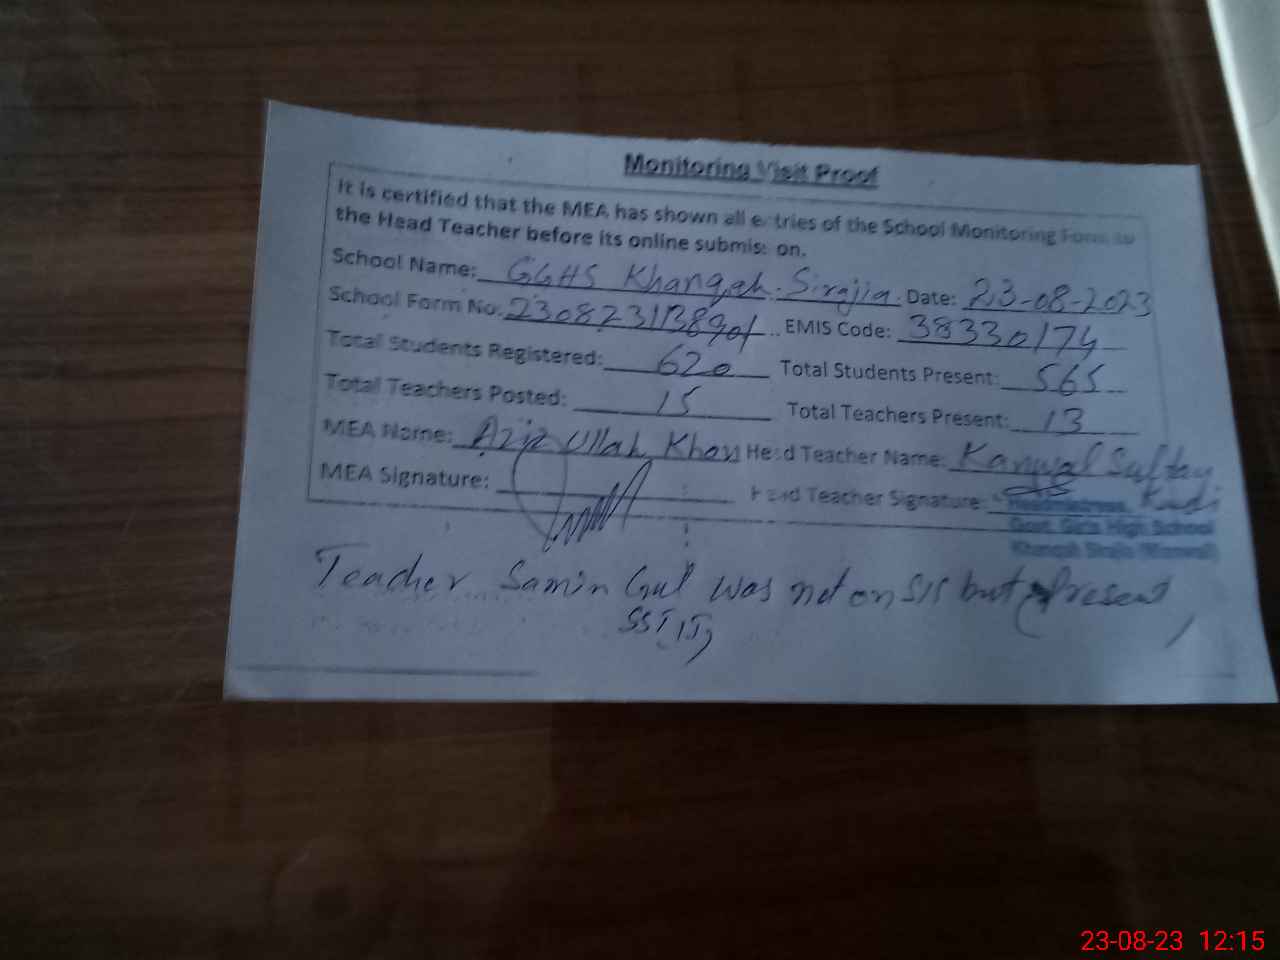 Monitoring Visit Proof
It is certified that the MEA has shown all entries of the School Monitoring Form to
the Head Teacher before its online submission.
School Name: GGHS Khanqah Sirajia. Date: 23-08-2023
School Form No: EMIS Code: 38330174
Total Students Registered: 620 Total Students Present: 565
Total Teachers Posted: 15 Total Teachers Present: 13
MEA Name: Aziz Ullah Khan Head Teacher Name: Kanwal
MEA Signature: Head Teacher Signature:
Headmistress,
Govt. Girls High School
Khanqah Sirajia (Mianwali)
Teacher Samin Gul was not on SIS but Present
SST IT
23-08-23 12:15